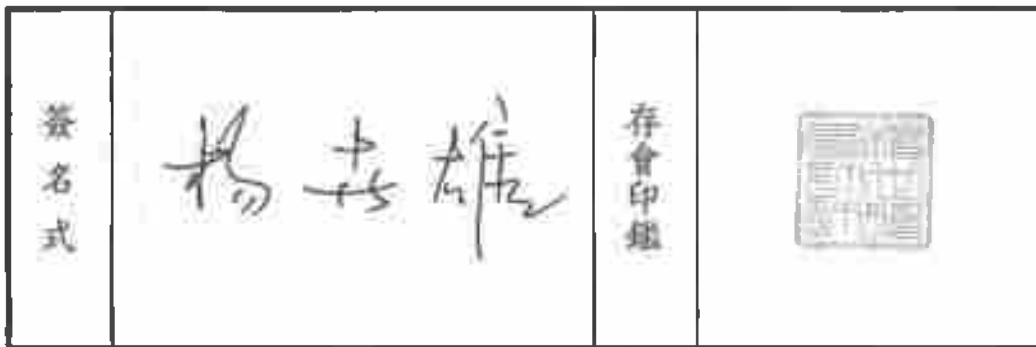 簽名式
楊志雄
存會印鑑